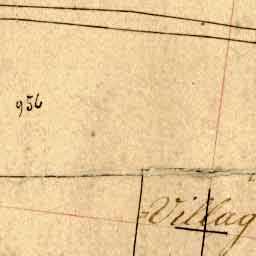 956
Villag